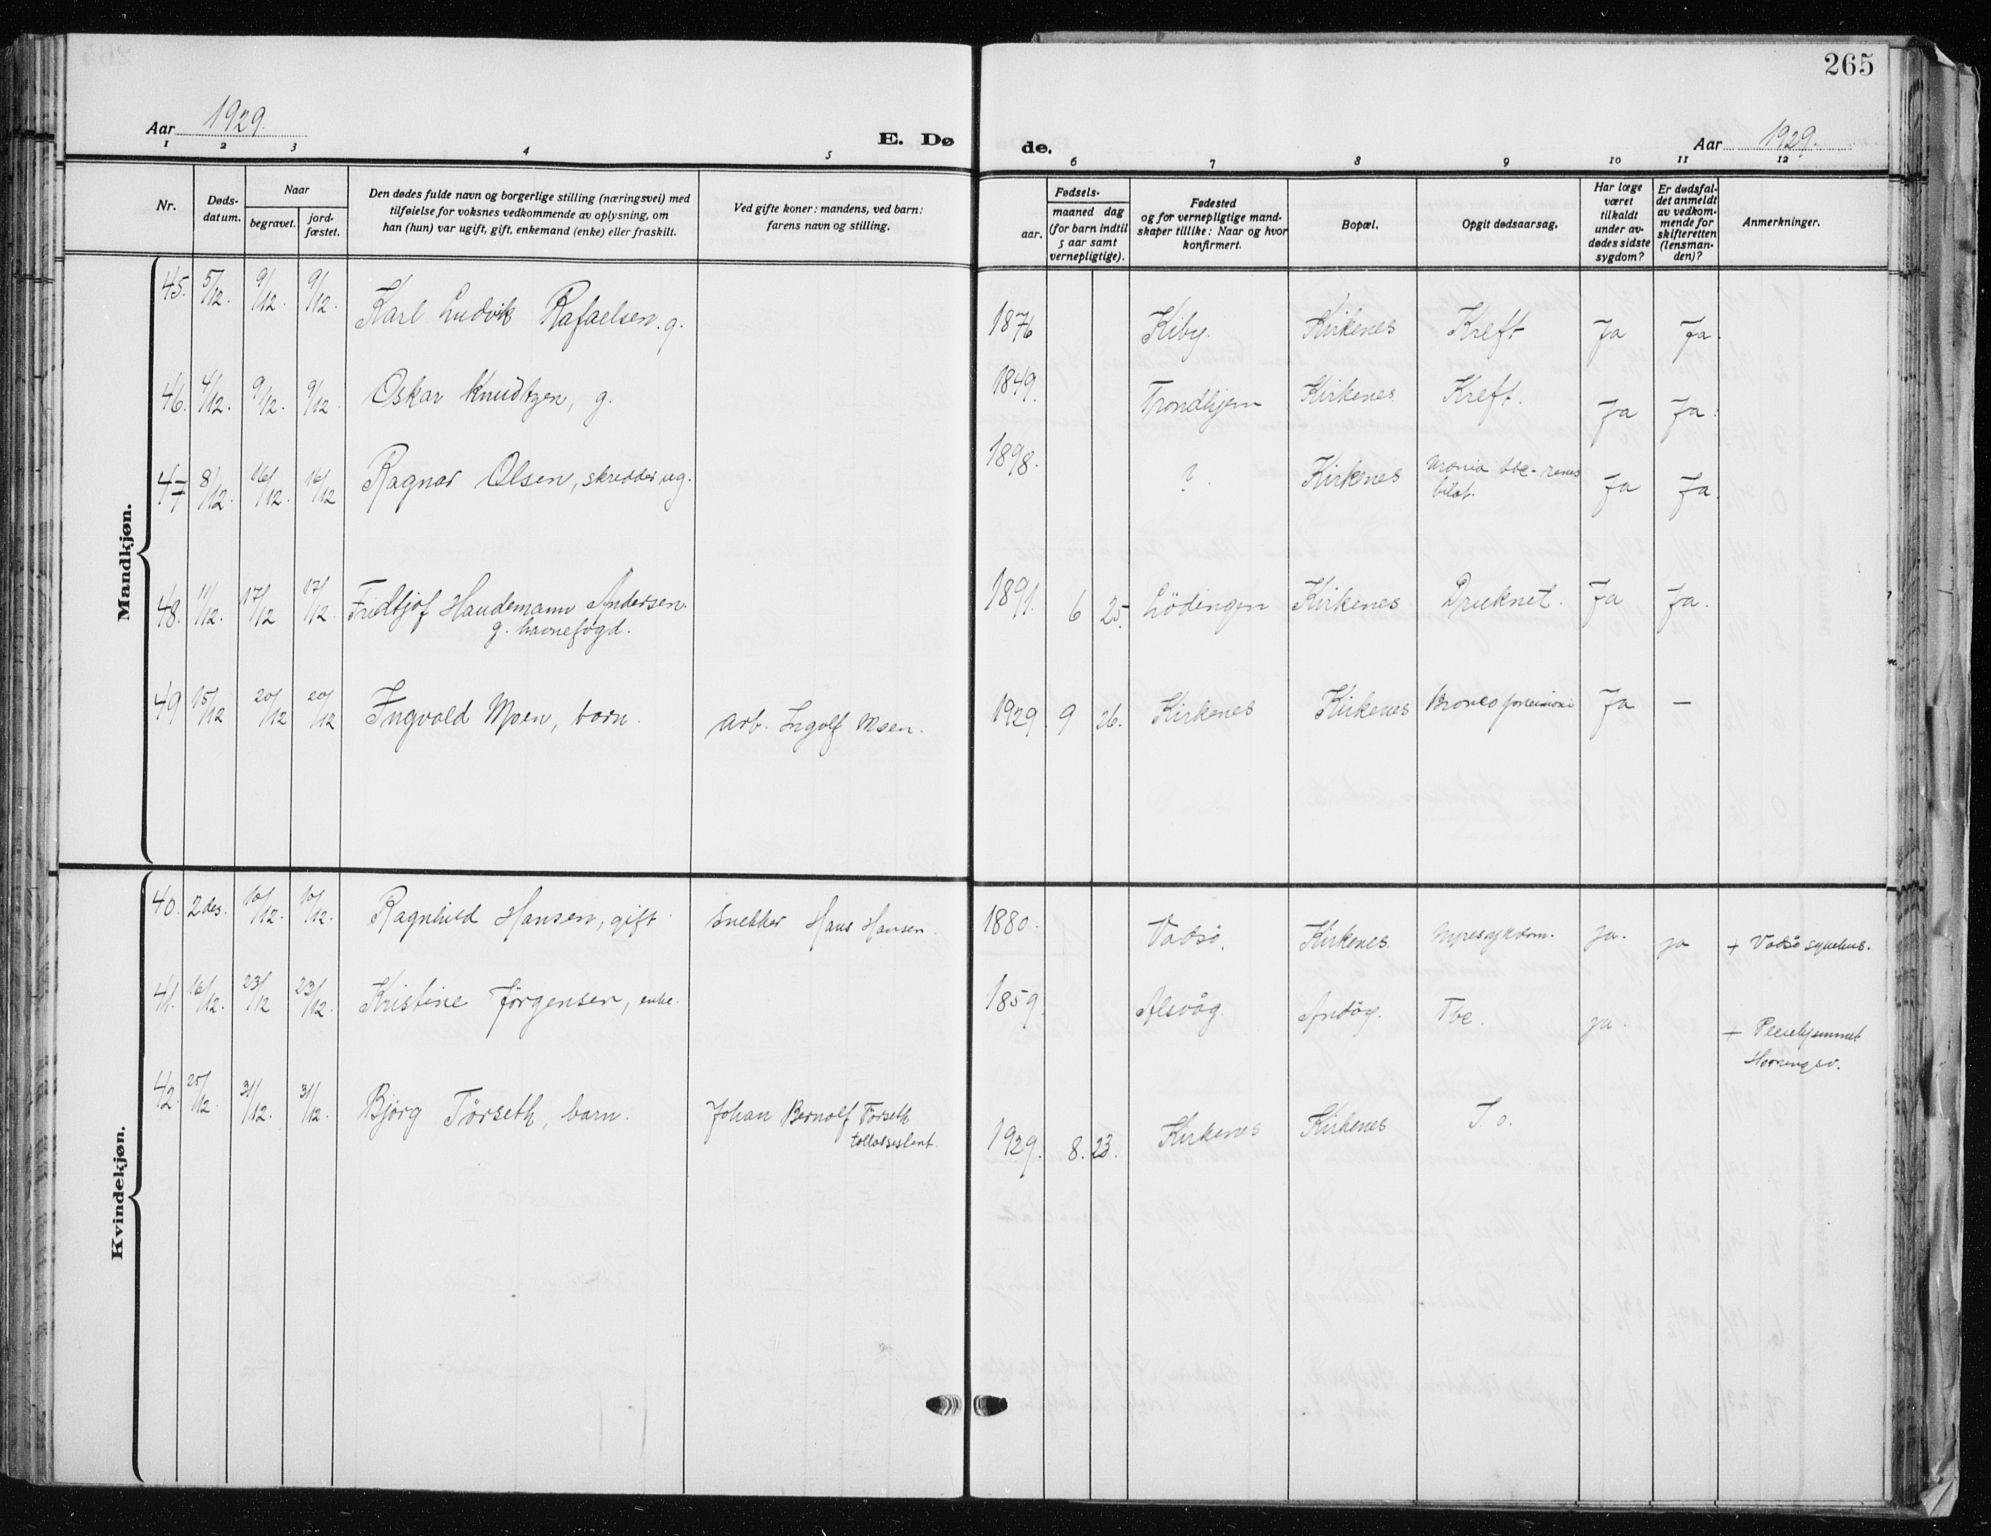 265
Aar 1929.
E. Dø
de.
Aar 1929.
1 2 3 4 5
6 7 8 9 10 11 12
Nr.
Døds-
datum.
Naar
begravet.
jord-
fæstet.
Den dødes fulde navn og borgerlige stilling (næringsvei) med
tilføielse for voksnes vedkommende av oplysning, om
han (hun) var ugift, gift, enkemand (enke) eller fraskilt.
Ved gifte koner: mandens, ved barn:
farens navn og stilling.
Fødsels-
aar.
maaned dag
(for barn indtil
5 aar samt
vernepligtige).
Fødested
og for vernepligtige mand-
skaper tillike: Naar og hvor
konfirmert.
Bopæl.
Opgit dødsaarsag.
Har læge
været
tilkaldt
under av-
dødes sidste
sygdom?
Er dødsfal-
det anmeldt
av vedkom-
mende for
skifteretten
(lensman-
den)?
Anmerkninger.
Mandkjøn.
45. 5/12. 9/12. 9/12. Karl Ludvik Rafaelsen. g. 1876 Kiby. Kirkenes Kreft Ja Ja.
46. 4/12. 9/12. 9/12. Oskar Knudtzen, g. 1849. Trondhjem Kirkenes Kreft. Ja Ja.
47 8/12. 16/12. 16/12 Ragnar Olsen, skredder, ug. 1898. ?. Kirkenes Uremia tbc-renes
bilat. Ja Ja.
48. 11/12. 17/12 17/12. Fridtjof Handemann Andersen.
g. havnefogd. 1891. 6 25. Lödingen Kirkenes Druknet. Ja Ja.
49 15/12 20/12 20/12 Ingvald Moen, barn. arb. Ingolf Moen. 1929. 9 26. Kirkenes Kirkenes Ja —
Kvindekjøn.
40. 2 des. 10/12. 10/12. Ragnhild Hansen, gift. Snekker Hans Hansen. 1880. Vadsö. Kirkenes Nyresykdom. ja. ja + Vadsö sykehus.
41. 16/12. 23/12 23/12. Kristine Jörgensen, enke. 1859. Alsvåg. Andöy. Tbc. ja. + Pleiehjemmet
42. 25/12. 31/12. 31/12. Bjorg Törseth, barn. Johan Bernolf Törseth
tollassistent. 1929. 8. 23. Kirkenes Kirkenes T. o.